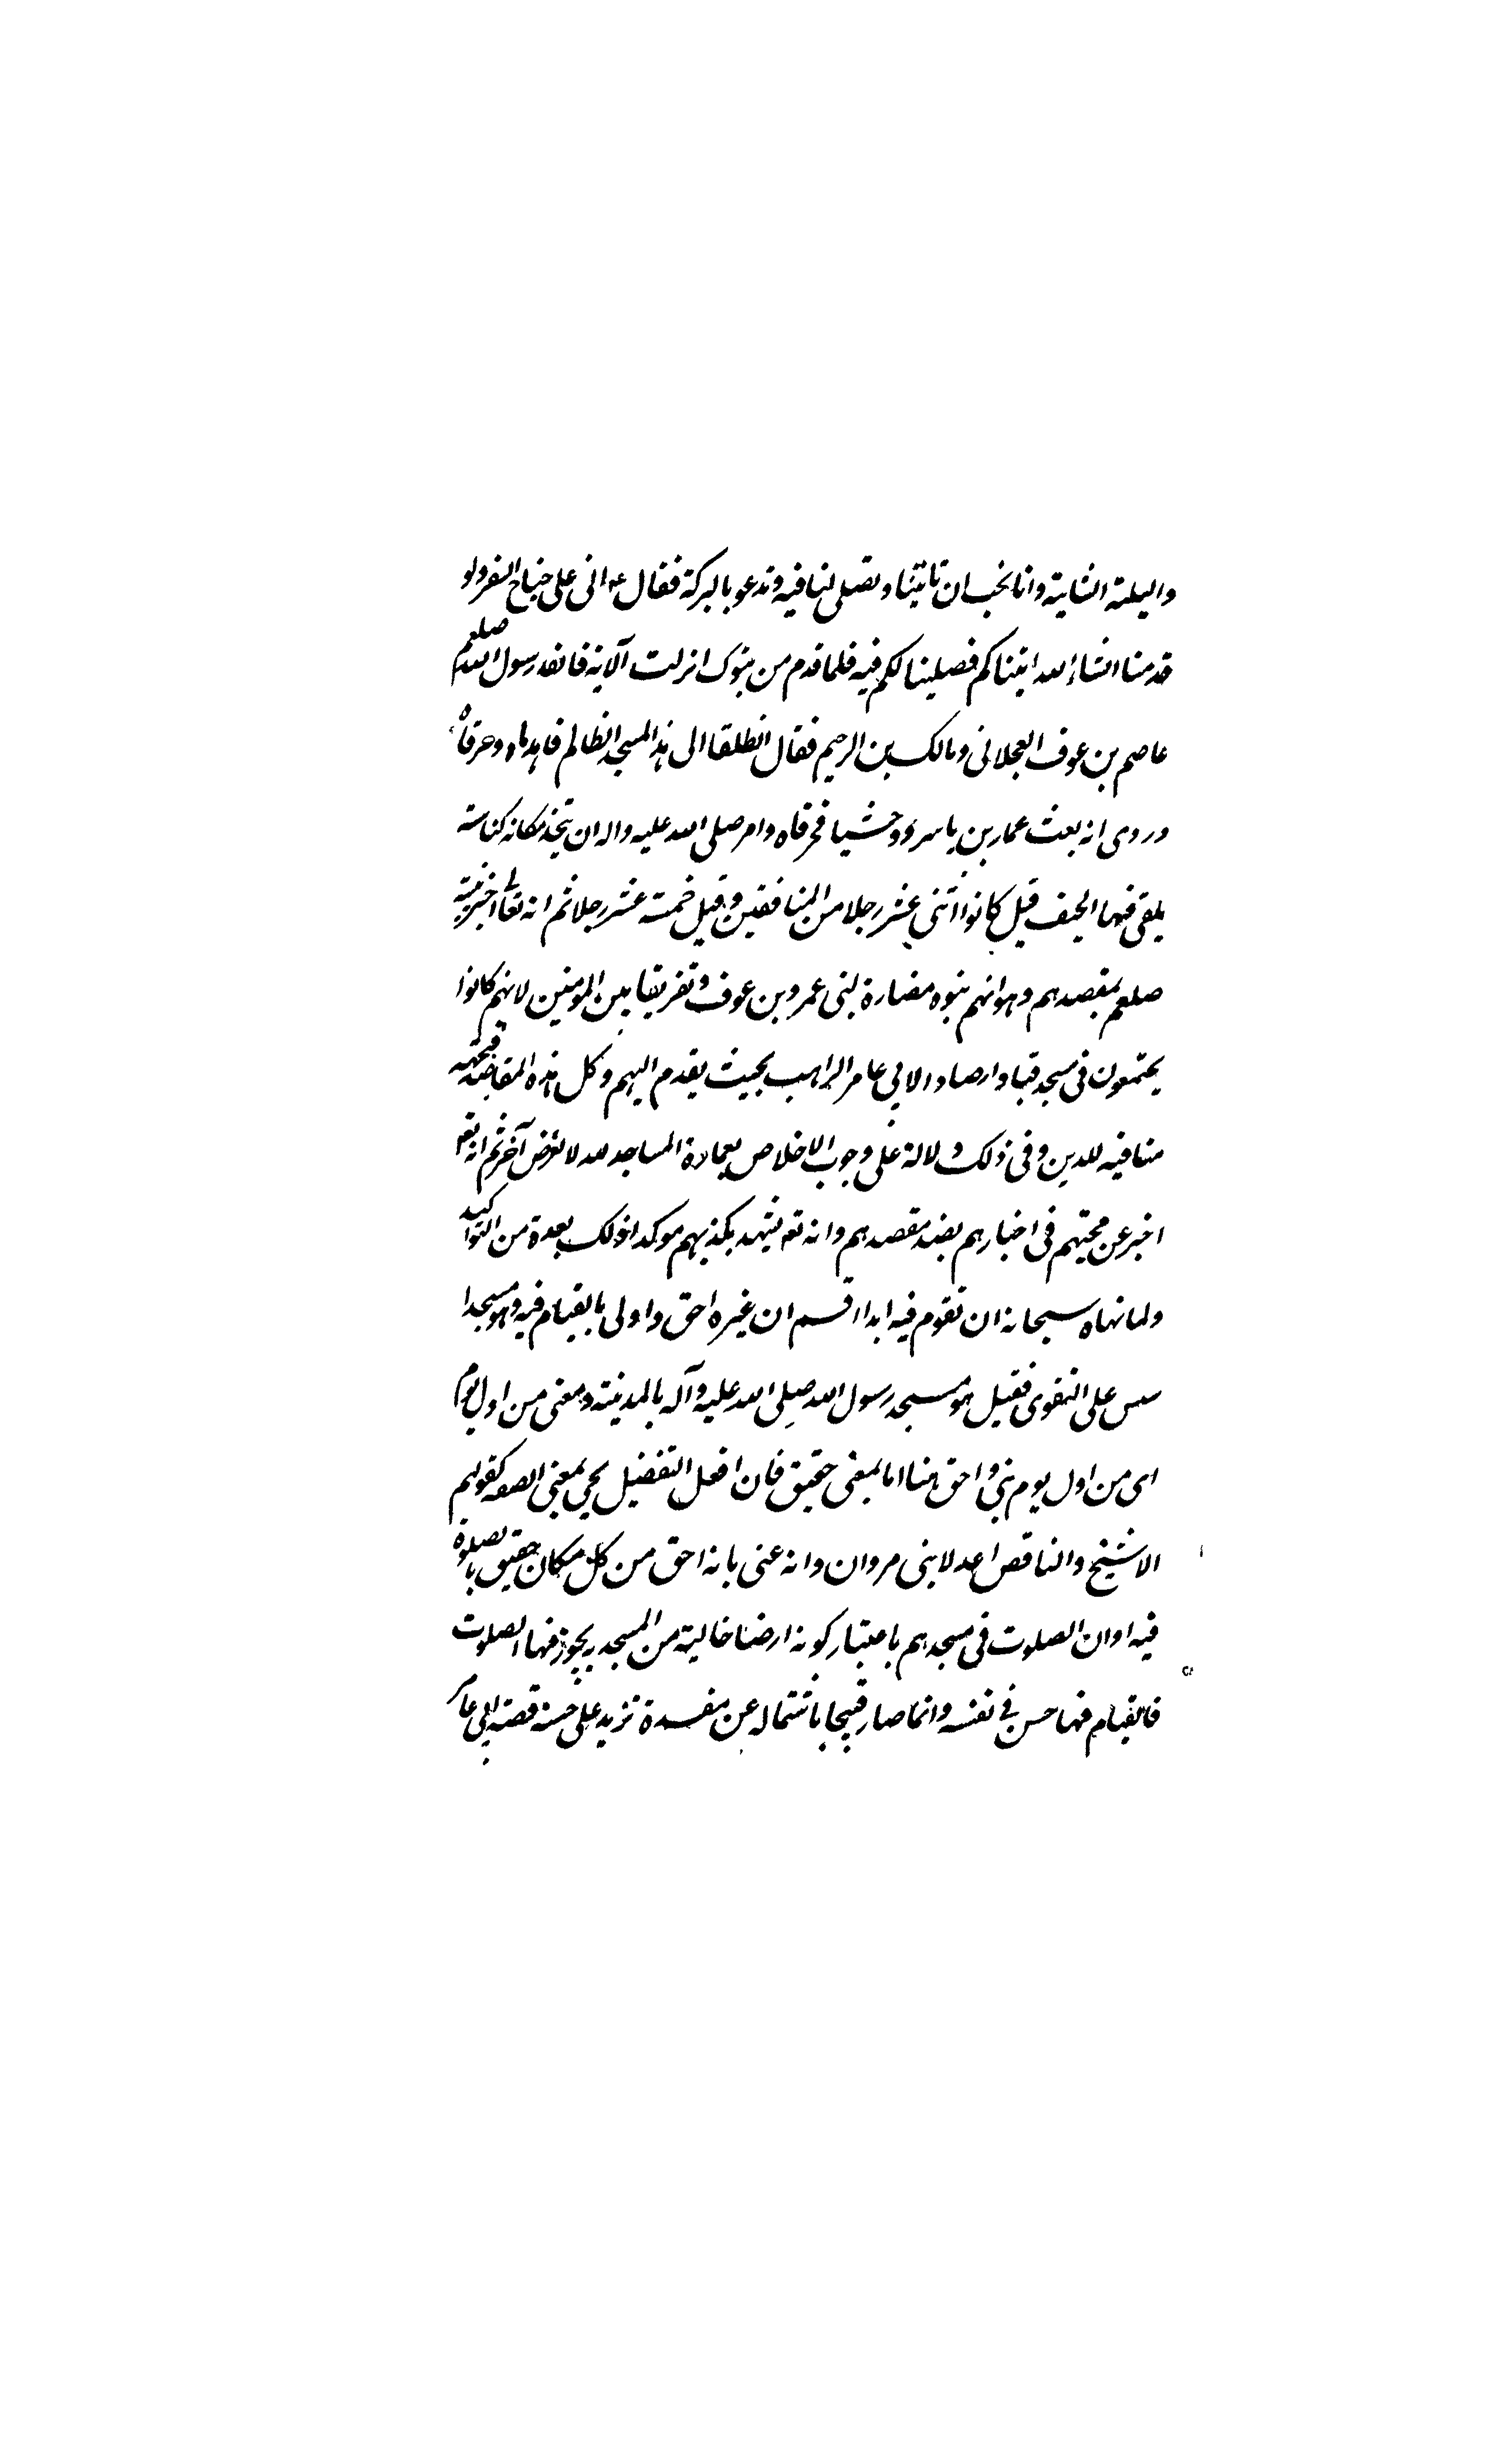 والليلة الشاتية وانا نحب ان تاتينا وتصلى لنا فيه وتدعو بالبركة فقال ع انى على جناح السفر ولو
قدمنا انشاء الله اتيناكم فصلينا لكم فيه فلما قدم من تبوك انزلت الآية فانفذ رسول الله صلعم
عاصم بن عوف العجلانى ومالك بن الرحيم فقال انطلقا الى هذا المسجد الظالم فاهدماه وحرقاه
وروى انه بعث عمار بن ياسر ووحشيا فحرقاه وامر صلى الله عليه واله ان يتخذ مكانه كناسة
يلقى فيها الجيف قيل كانوا اثنى عشر رجلا من المنافقين وقيل خمسة عشر رجلا ثم انه تعالى اخبر نبيه
صلعم بمقصدهم وهو انهم بنوه مضارة لبنى عمرو بن عوف وتفريقا بين المومنين لانهم كانوا
يجتمعون فى مسجد قبا وارصادا لابي عامر الراهب بحيث يقدم اليهم وكل هذه المقاصد قبيحة
منافيه للدين وفى ذلك دلالة على وجوب الاخلاص بعمارة المساجد لله لا لغرض آخر ثم انه تع
اخبر عن محبتهم فى اخبارهم بضد مقصدهم وانه تع يشهد بكذبهم موكدا ذلك بعدة من التواكيد
ولما نهاه سبحانه ان تقوم فيه ابدا اقسم ان غيره احق واولى بالقيام فيه وهو مسجد ا
سس على التقوى فقيل هو مسجد رسول الله صلى الله عليه وآله بالمدينة ومعنى من اول يوم
اى من اول يوم بني واحق هنا اما بمعنى حقيق فان افعل التفضيل يجي بمعنى الصفه كقولهم
الاشيخ والناقص اعدلا بنى مروان وانه عنى بانه احق من كل مكان حقيق بالصلوة
فيه او ان الصلوت فى مسجدهم باعتبار كونه ارضا خالية من المسجدية يجوز فيها الصلوت
فالقيام فيها حسن في نفسه وانما صار قبيحا باشتماله عن مفسدة تزيد على حسنه قصة ابي عامر